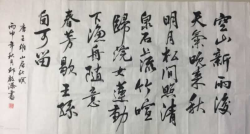 空山新雨後
天氣晚来秋
明月松间照清
泉石上流竹喧
歸浣女蓮動
下渔舟随意
春芳歇王孫
自可留
唐王维山居秋暝
丙申年秋月
書